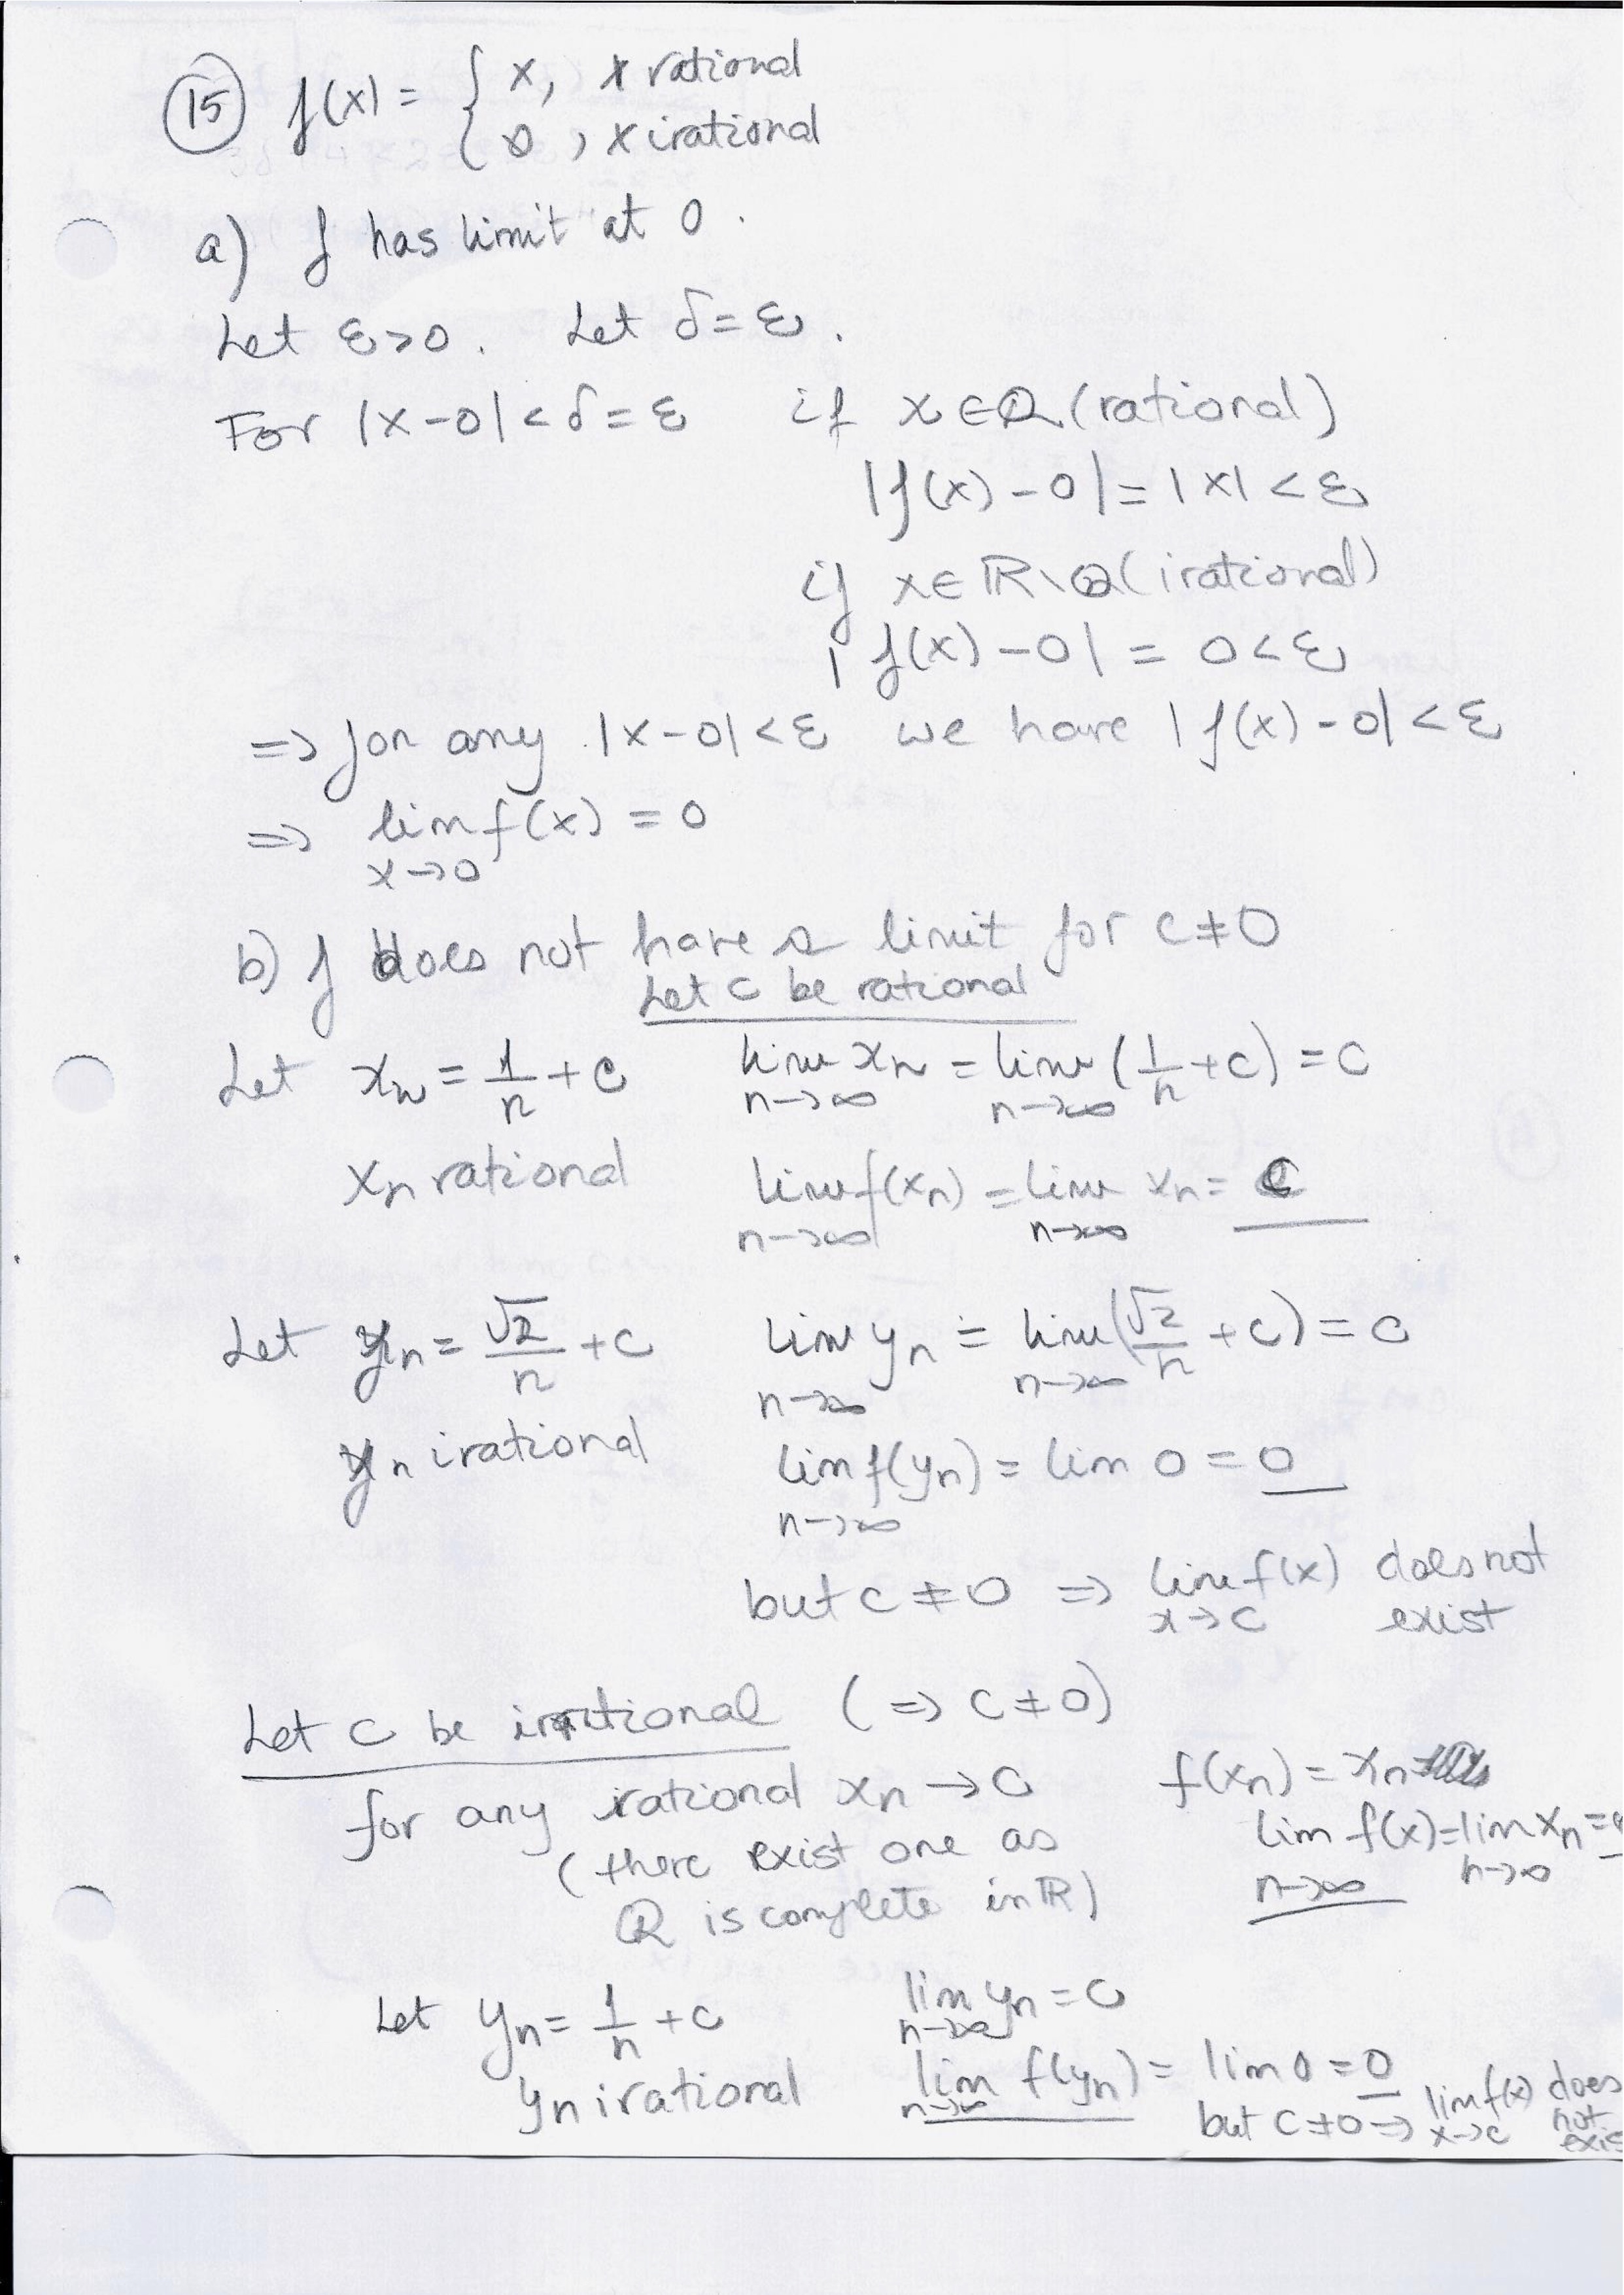 15 f(x) = { x, x rational
0, x irational
a) f has limit at 0.
Let ε>0. Let δ=ε.
For |x-0|<δ=ε if x∈Q (rational)
|f(x)-0|=|x|<ε
if x∈ℝ\Q (irational)
|f(x)-0| = 0<ε
=> for any |x-0|<ε we have |f(x)-0|<ε
=> lim f(x) = 0
x→0
b) f does not have a limit for c≠0
Let c be rational
Let xn = 1/n + c lim xn = lim (1/n + c) = c
n→∞ n→∞
xn rational lim f(xn) = lim xn = c
n→∞ n→∞
Let yn = √2/n + c lim yn = lim (√2/n + c) = c
n→∞ n→∞
yn irational lim f(yn) = lim 0 = 0
n→∞
but c≠0 => lim f(x) does not
x→c exist
Let c be irrational (=> c≠0)
for any rational xn → c f(xn) = xn
(there exist one as lim f(x) = lim xn =
n→∞ n→∞
Q is complete in ℝ)
Let yn = 1/n + c lim yn = c
n→∞
yn irational lim f(yn) = lim 0 = 0
n→∞
but c≠0 => lim f(x) does
x→c not
exis